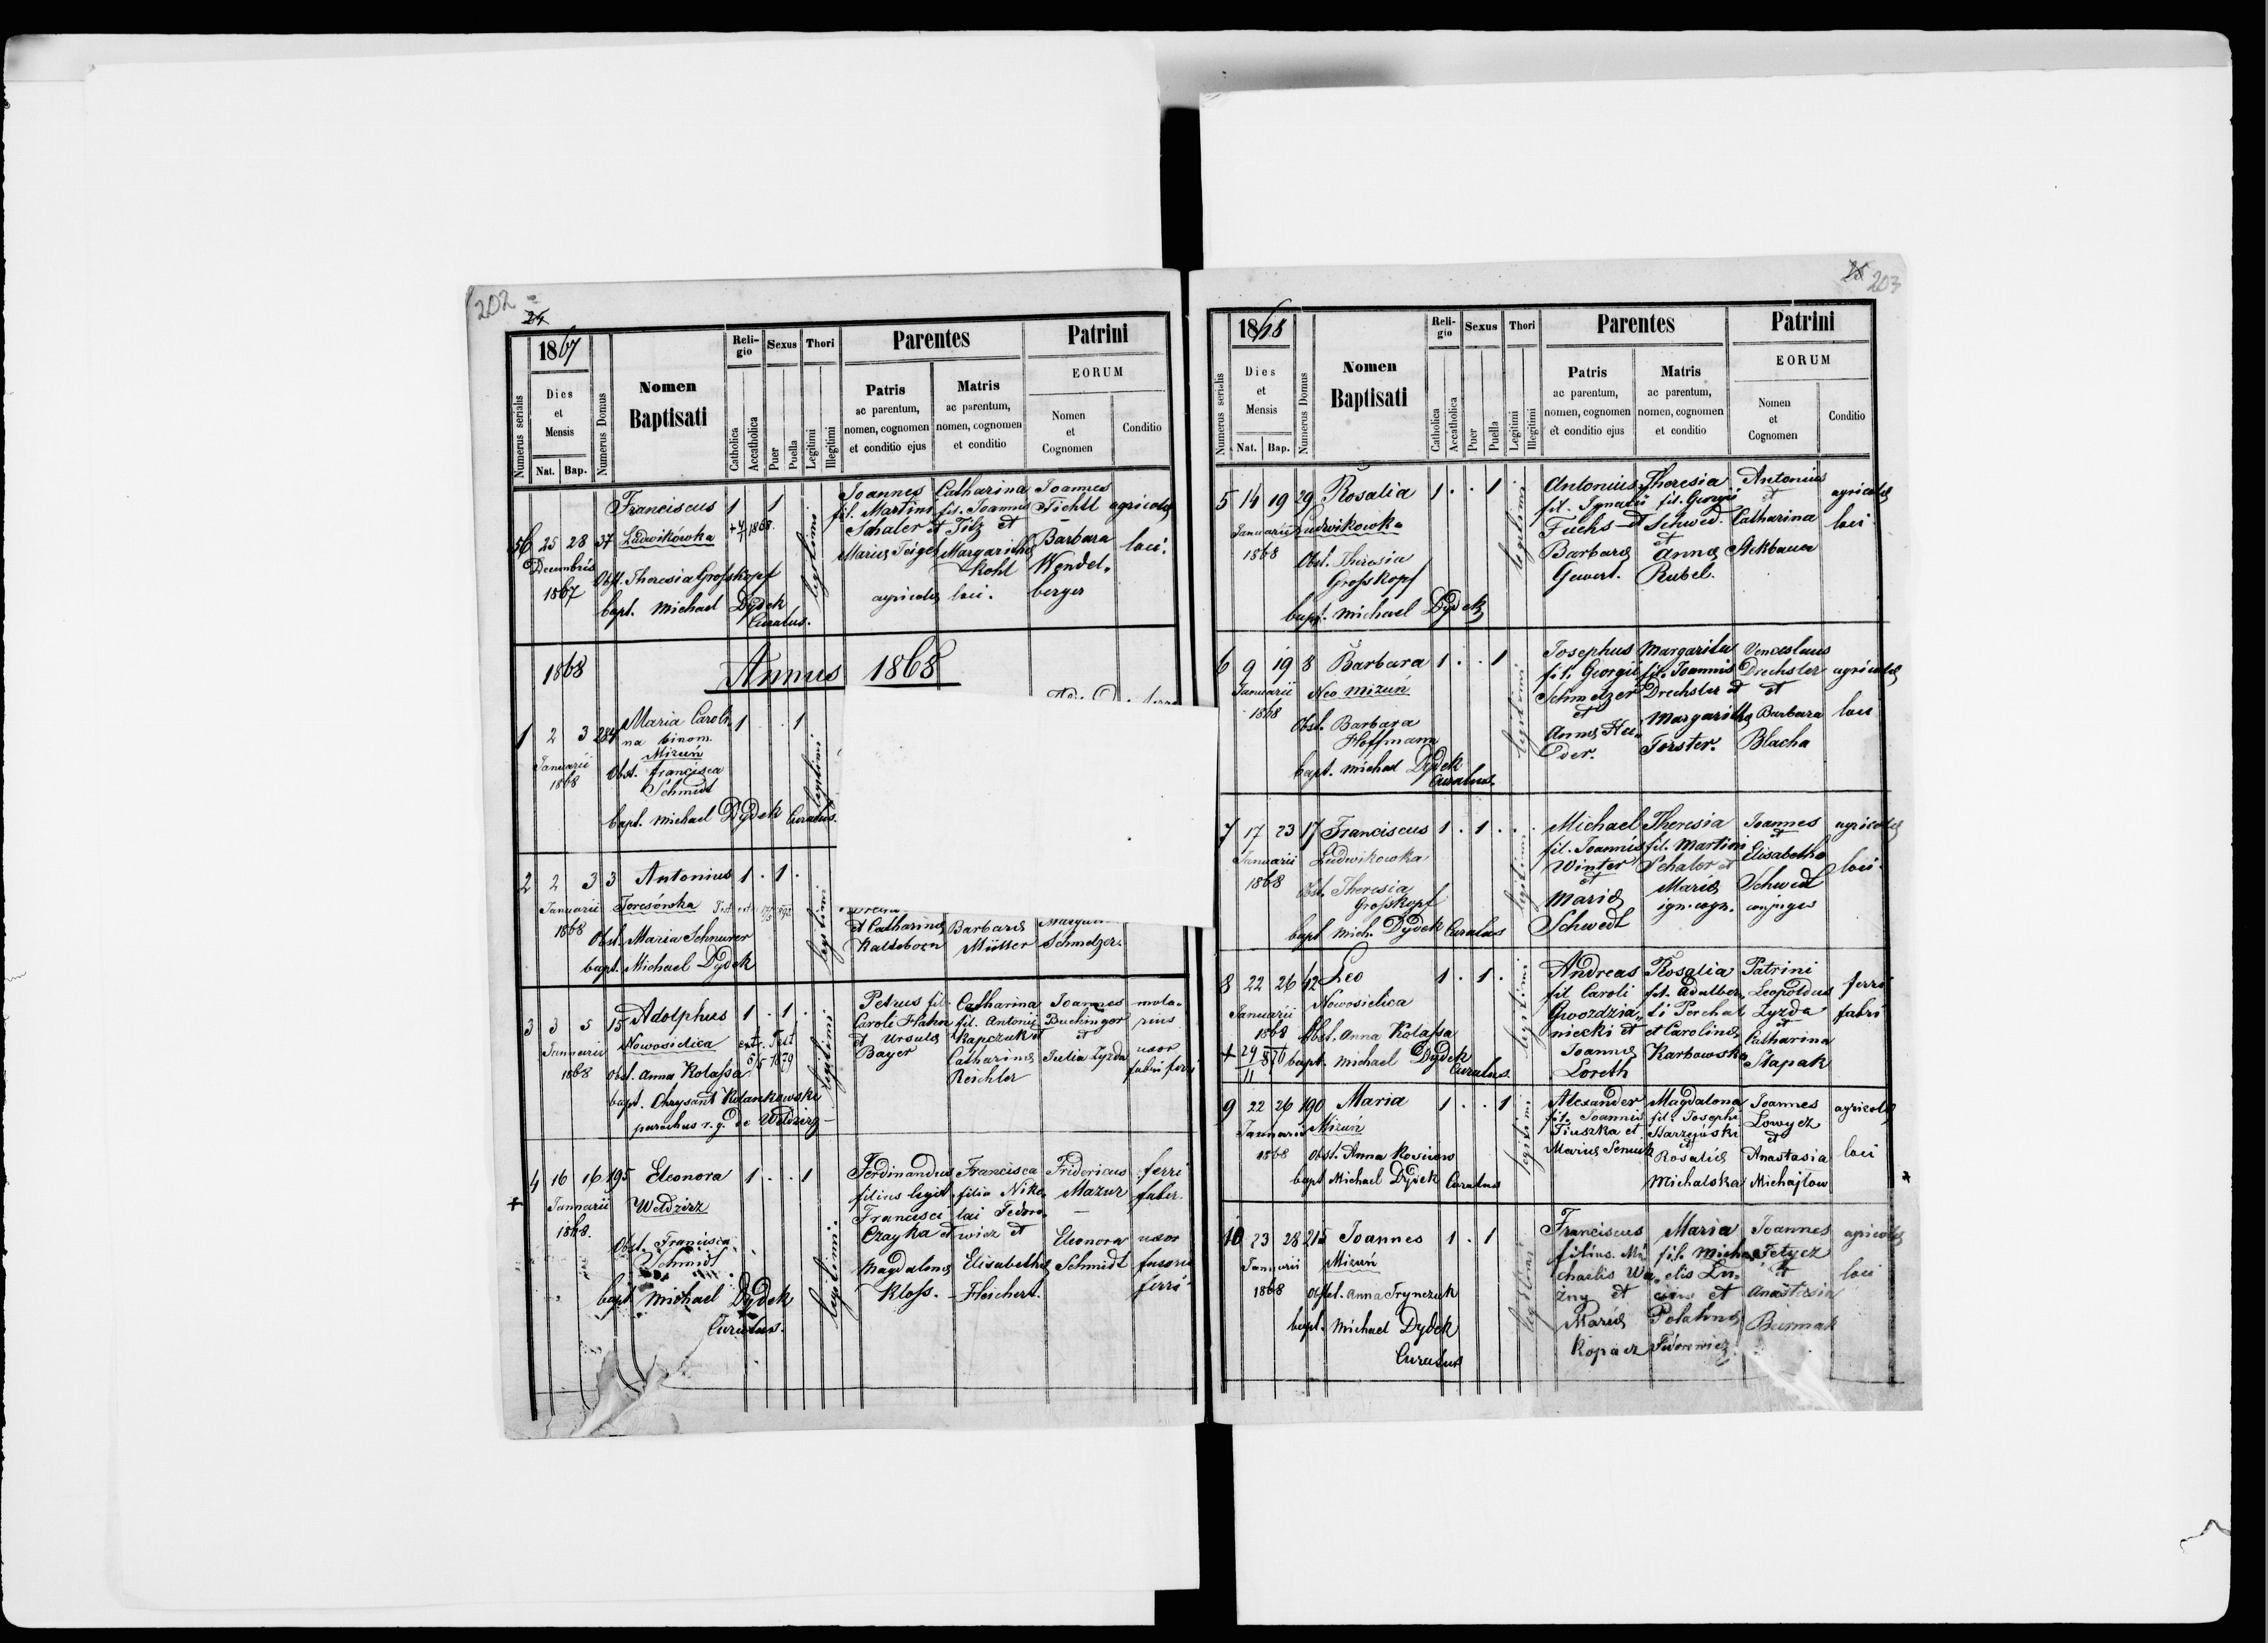 202
24
1867
Numerus serialis
Dies
et
Mensis
Nat. Bap.
Numerus Domus
Nomen
Baptisati
Reli-
gio
Catholica
Accatholica
Sexus
Puer
Puella
Thori
Legitimi
Illegitimi
Parentes
Patris
ac parentum,
nomen, cognomen
et conditio ejus
Matris
ac parentum,
nomen, cognomen
et conditio
Patrini
EORUM
Nomen
et
Cognomen
Conditio
56 25 28 37 Franciscus 1 1
Ludwikówka 1868
Decembris
1867
Obst. Theresia Grosskopf
bapt. Michael Dydek
Curatus.
legitimi
Joannes
fil. Martini
Schaler et
Maria Teigel
Catharina
fil. Joannis
Tilz et
Margaritha
Kohl
agricolae loci.
Joannes
Tichtl
Barbara
Wendel-
berger
agricolae
loci.
1868
Annus 1868
1 2 3 284 Maria Caroli- 1 . . 1
na binom.
Mizuń
Januarii
1868
Obst. Francisca
Schmidt
bapt. Michael Dydek Curatus.
legitimi
2 2 3 3 Antonius 1 . 1 .
Januarii
1868
Toresówka
Obst. Maria Schnurer
bapt. Michael Dydek
legitimi
et Catharina
Kalteborn
Barbara
Müller
Schmelzer
3 3 5 15 Adolphus 1 . 1 .
Januarii
1868
Nowosielica extr. Test
5/5 1879
Obst. Anna Kolassa
bapt. Chrysant Kolankowski
parochus r. g. de Weldzirz
legitimi
Petrus fil.
Caroli Hahn
et Ursula
Bayer
Catharina
fil. Antonii
Kapczuk et
Catharina
Reichler
Joannes
Buchinger
et
Julia Zyzda
mola-
rius
uxor
fabri ferri
4 16 16 195 Eleonora 1 . . 1
Januarii
1868.
Weldzirz
Obst. Francisca
Schmidt
bapt. Michael Dydek
Curatus.
legitimi.
Ferdinandus
filius legit.
Francisci
Czayka et
Magdalena
Kloss.
Francisca
filia Niko-
lai Fedoro-
wicz et
Elisabetha
Fleichert.
Fridericus
Mazur
Eleonora
Schmidt
ferri
faber.
uxor
fusoris
ferri
203
1868
Numerus serialis
Dies
et
Mensis
Nat. Bap.
Numerus Domus
Nomen
Baptisati
Reli-
gio
Catholica
Accatholica
Sexus
Puer
Puella
Thori
Legitimi
Illegitimi
Parentes
Patris
ac parentum,
nomen, cognomen
et conditio ejus
Matris
ac parentum,
nomen, cognomen
et conditio
Patrini
EORUM
Nomen
et
Cognomen
Conditio
5 14 19 29 Rosalia 1 . . 1
Januarii Ludwikowka
1868
Obst. Theresia
Grosskopf
bapt. Michael Dydek
legitimi
Antonius
fil. Ignatii
Fuchs et
Barbara
Gewert.
Theresia
fil. Georgii
Schwed.
et
Anna
Rubel.
Antonius
et
Catharina
Stekbauer
agricolae
loci.
6 9 19 8 Barbara 1 . . 1
Januarii
1868
Neo Mizuń
Obst. Barbara
Hoffmann
bapt. Michael Dydek
Curatus.
legitimi
Josephus
fil. Georgii
Schmelzer
et
Anna Hee-
der.
Margaritha
fil. Joannis
Drechsler et
Margaritha
Forster.
Venceslaus
Drechsler
et
Barbara
Blacha
agricolae
loci
7 17 23 17 Franciscus 1 . 1 .
Januarii
1868
Ludwikowka
Obst. Theresia
Grosskopf
bapt Mich. Dydek Curatus
legitimi
Michael
fil. Joannis
Winter
et
Maria
Schwedt
Theresia
fil. Martini
Schaler et
Maria
ign. cogn.
Joannes
et
Elisabetha
Schwedt
conjuges
agricolae
loci.
8 22 26 42 Leo 1 . 1 .
Januarii
1868
Nowosielica
Obst. Anna Kolassa
+ 29/11 876 bapt. Michael Dydek
Curatus.
legitimi
Andreas
fil Caroli
Gwozdzia-
niecki et
Joanna
Loreth
Rosalia
fil. Adalber-
ti Perchal
et Carolina
Karbowska
Patrini
Leopoldus
Zyzda
et
Catharina
Stapak
ferri
fabri
9 22 26 190 Maria 1 . . 1
Januarii
1868
Mizuń
Obst. Anna Kosciow
bapt Michael Dydek Curatus
legitimi
Alexander
fil. Joannis
Tiuszka et
Maria Semuk
Magdalena
fil. Josephi
Starzyński
et
Rosalia
Michalska
Joannes
Lowycz
et
Anastasia
Michajlow
agricolae
loci
10 23 28 215 Joannes 1 . 1
Januarii
1868
Mizuń
Obst. Anna Frynczuk
bapt. Michael Dydek
Curatus
legitimi
Franciscus
filius. Mi-
chaelis Wa-
żny et
Maria
Kopacz
Maria
fil. Micha-
elis Lu-
ciw et
Polahna
Fedorowicz.
Joannes
Fetycz
et
Anastasia
Burmak
agricolae
loci